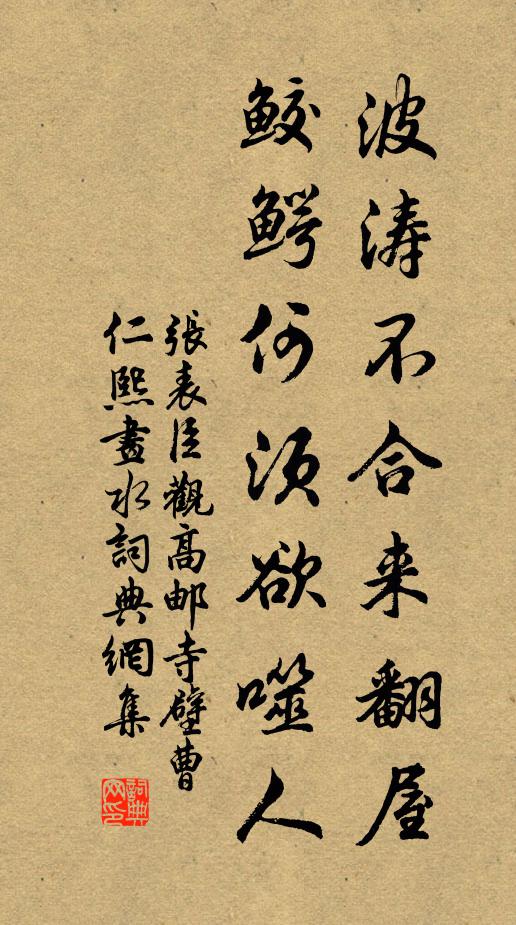 波涛不合来翻屋
鲛鳄何须欲噬人
張表臣觀高邮寺壁曹
仁熙畫水詞典網集
詞典
网印